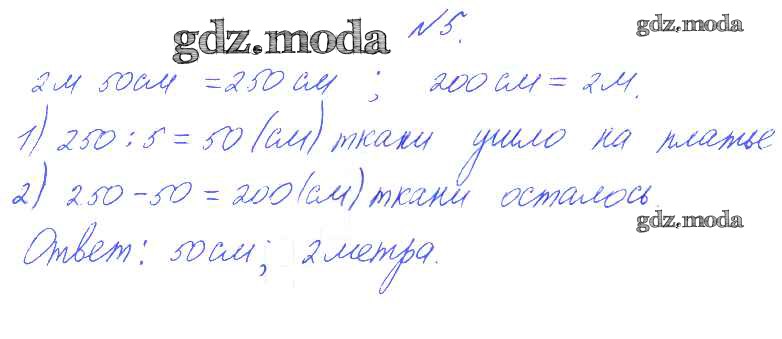 gdz.moda №5. gdz.moda
2м 50см = 250 см ; 200 см = 2м.
1) 250 : 5 = 50 (см) ткани ушло на платье
2) 250 - 50 = 200 (см) ткани осталось.
gdz.moda
Ответ: 50 см; 2 метра.